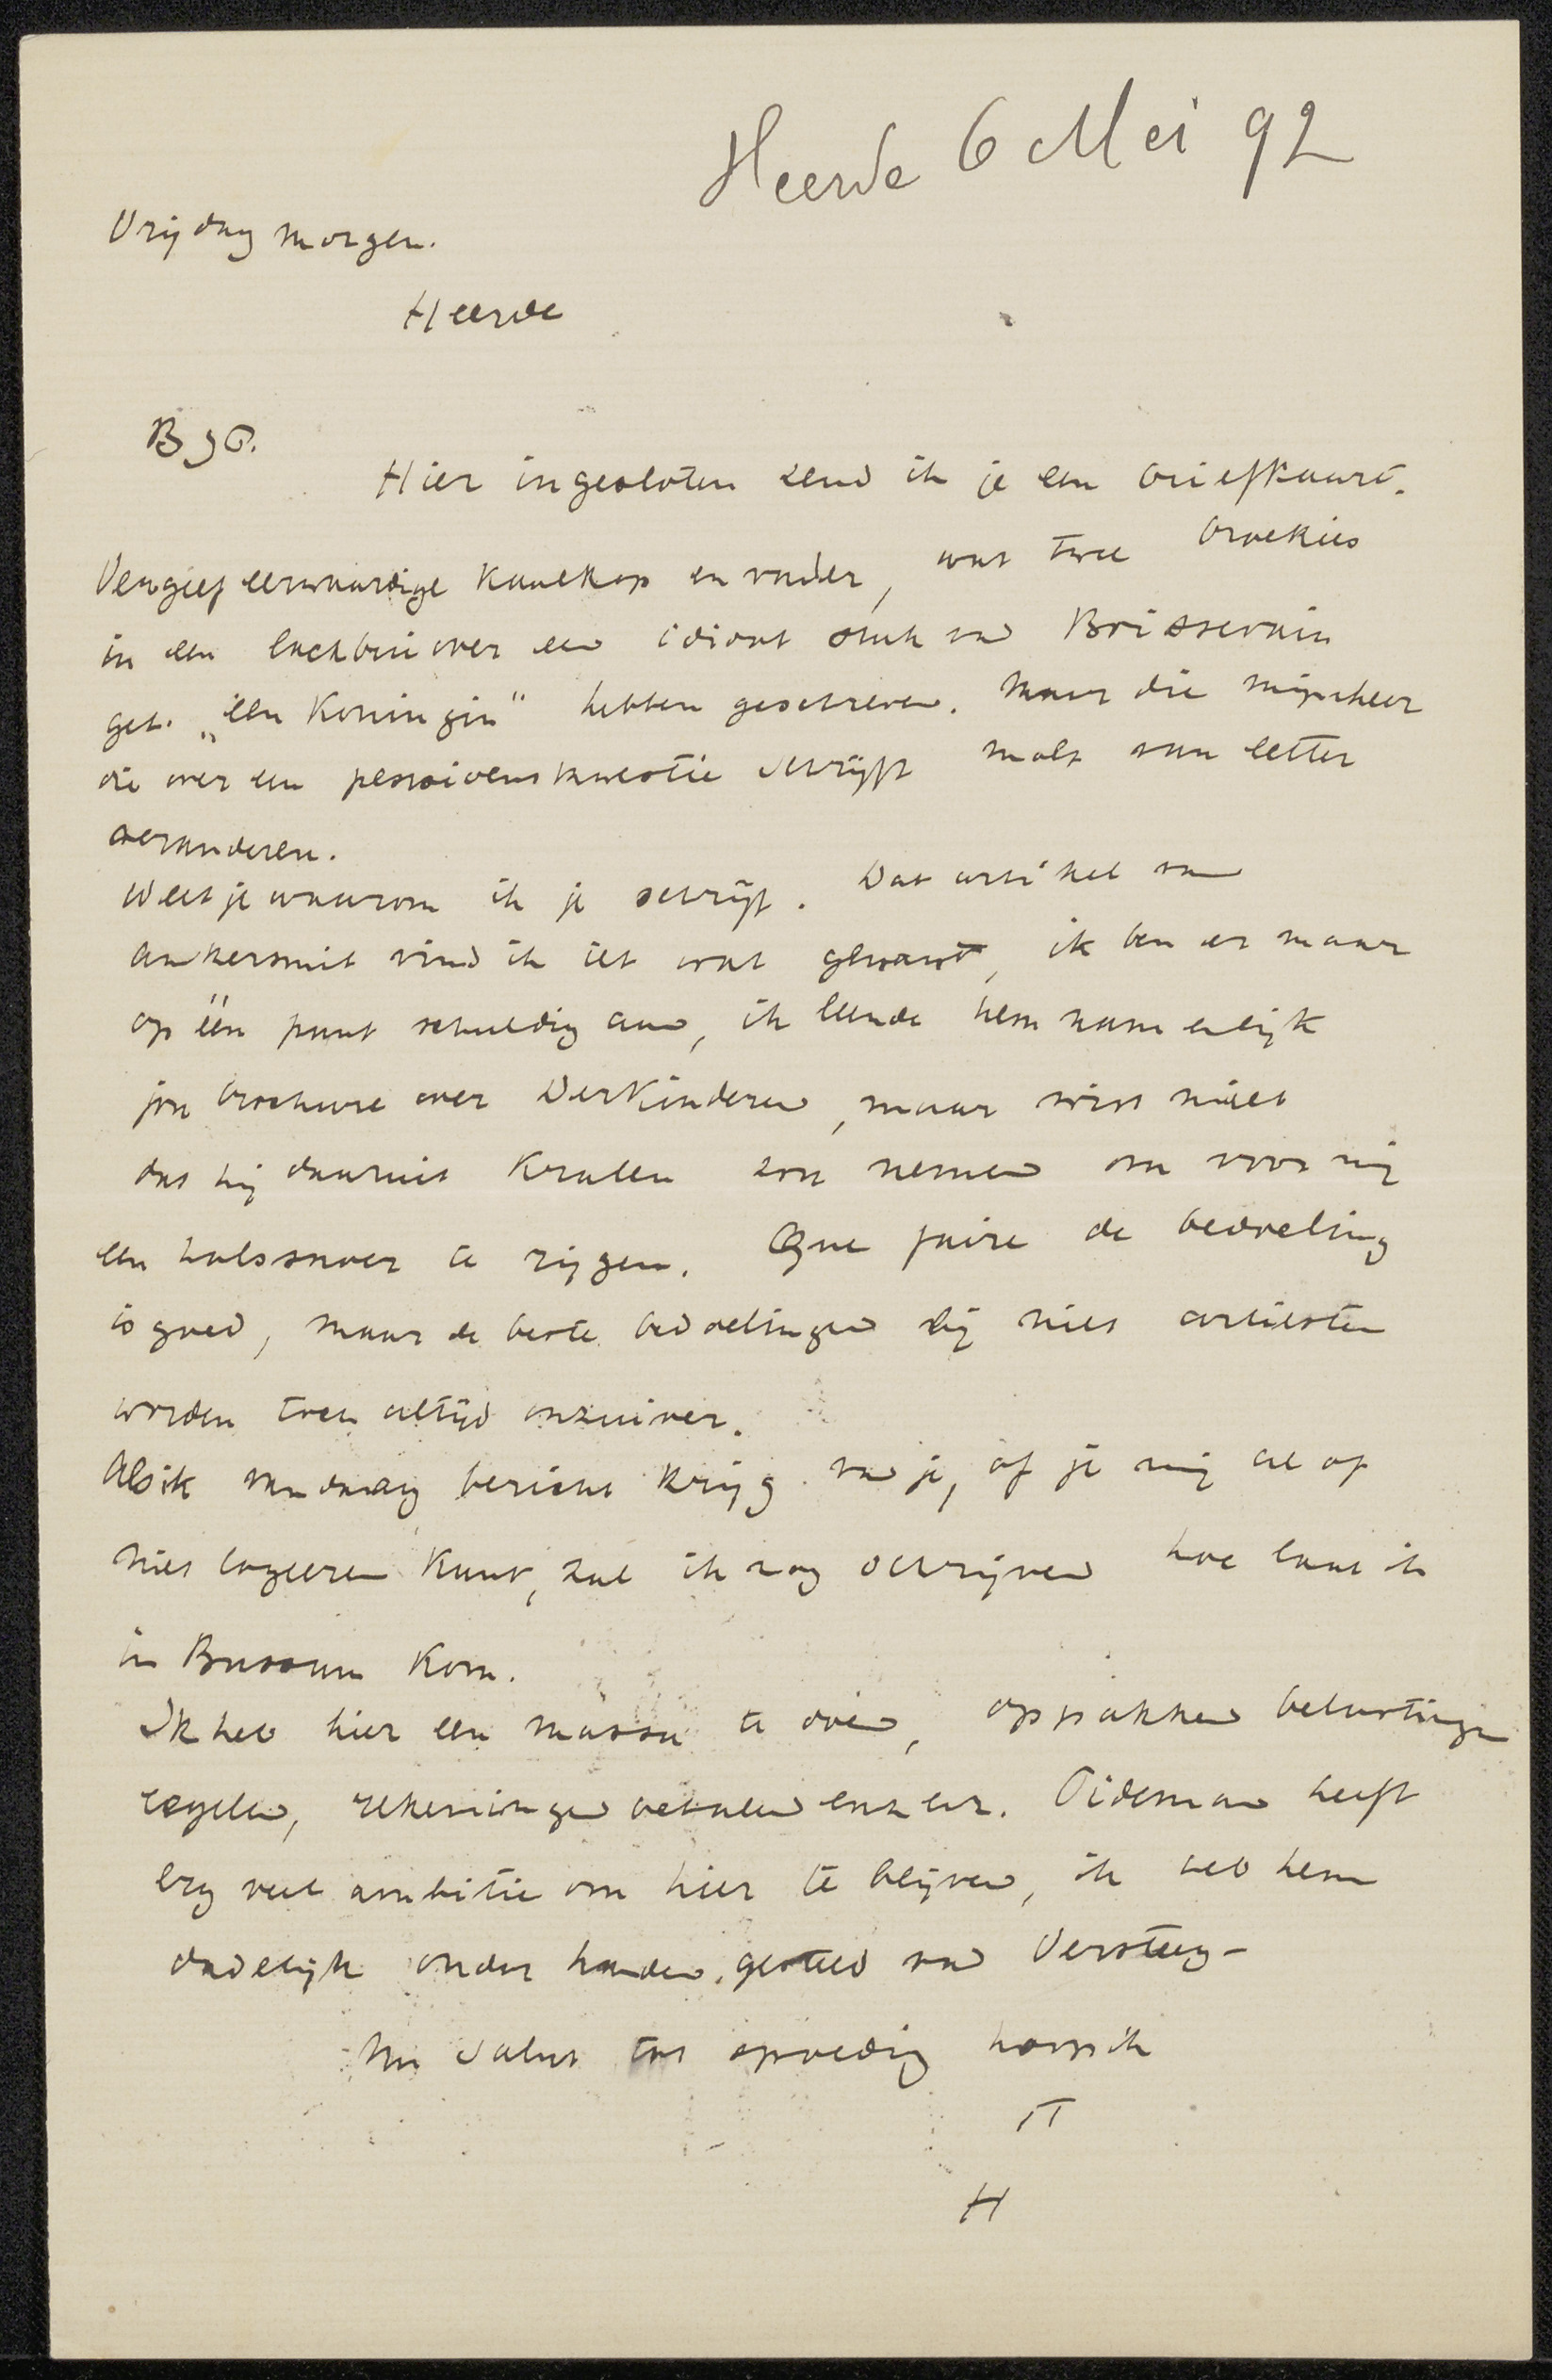 Heerde 6 Mei 92
Vrijdag morgen.
Heerde
B J O.
Hier ingesloten zend ik je een briefkaart.
Vergeef eerwaardige Kaalkop en vader, wat twee broekies
in een lachbui over een idioot stuk van Boissevain
get. „een Koningin" hebben geschreven. Maar die mijnheer
die over een kwestie schrijft moet van letter
veranderen.
Weet je waarom ik je schrijf. Dat artikel van
Ankersmit vind ik iet wat genant, ik ben er maar
op één punt schuldig aan, ik leende hem namenlijk
jou brochure over Derkinderen, maar wist niet
dat hij daaruit Kralen zou nemen om voor mij
een halssnoer te rijgen. Que faire de bedoeling
is goed, maar de beste bedoelingen bij niet artiesten
worden toch altijd onzuiver.
Als ik vandaag bericht krijg van je, of je mij al of
niet logeeren kunt, zal ik nog schrijven hoe laat ik
in Bussum Kom.
Ik heb hier een massa te doen, oppakken belastingen
regelen, rekeningen betalen enz enz. Oideman heeft
erg veel ambitie om hier te blijven, ik heb hem
dadelijk onder handen gesteld van Versteeg-
Nu saluut tot spoedig hoop ik
TT
H